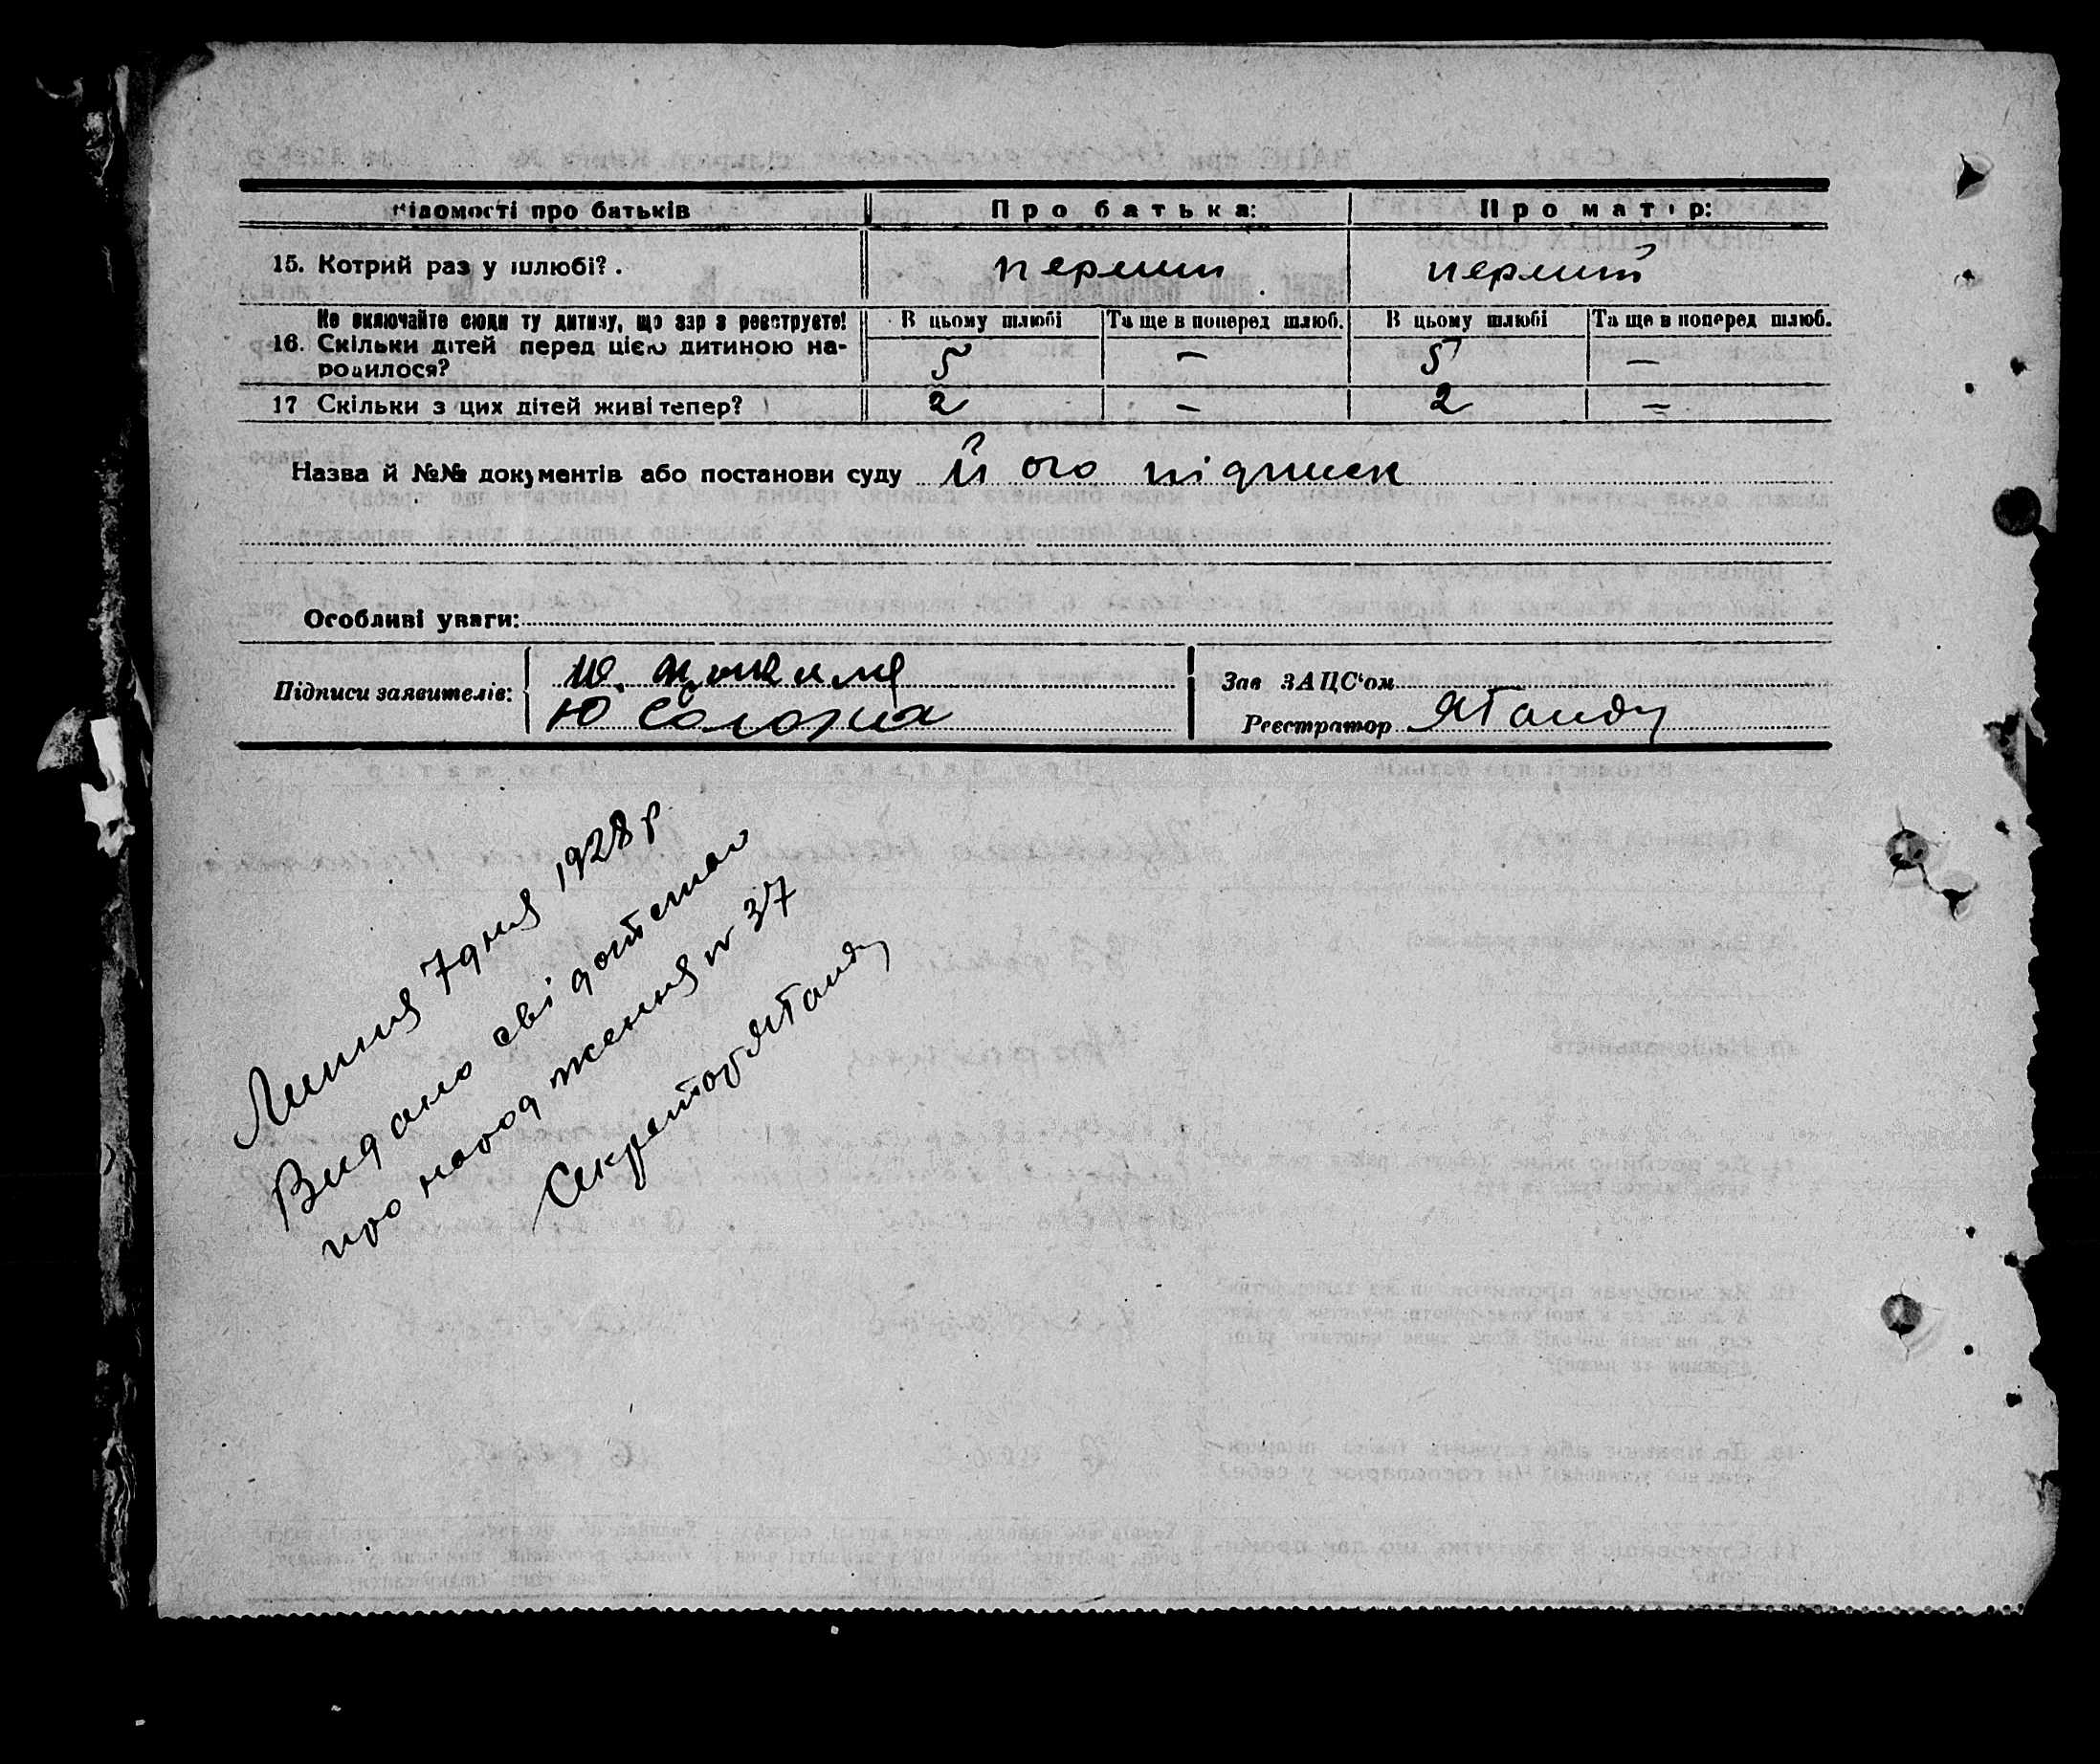 Відомості про батьків Про батька: Про матір:
15. Котрий раз у шлюбі? . перший перший
Не включайте сюди ту дитину, що зар з реєструєте! В цьому шлюбі Та ще в поперед шлюб. В цьому шлюбі Та ще в поперед шлюб.
16. Скільки дітей перед цією дитиною на-
родилося? 5 — 5 —
17 Скільки з цих дітей живі тепер? 2 — 2 —
Назва й №№ документів або постанови суду його підписк
Особливі уваги:
Підписи заявителів: Ю
Зав ЗАЦС'ом
Реєстратор
Липня 7 дня 1928 р
Видано свідоцтво
про народження № 37
Секретар